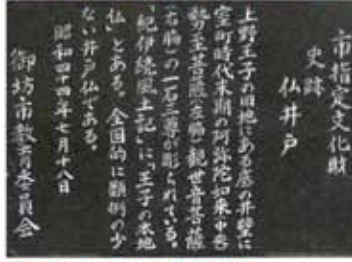 市指定文化財
史跡
仏井戸
上野王子の旧地にある底の井壁に
室町時代末期の阿弥陀如来中央
勢至菩薩左脇観世音菩薩
右脇の一石三尊が彫られている。
「紀伊続風土記」に、「王子の本地
仏」とある。全国的に類例の少
ない井戸仏である。
昭和四十四年七月十八日
御坊市教育委員会